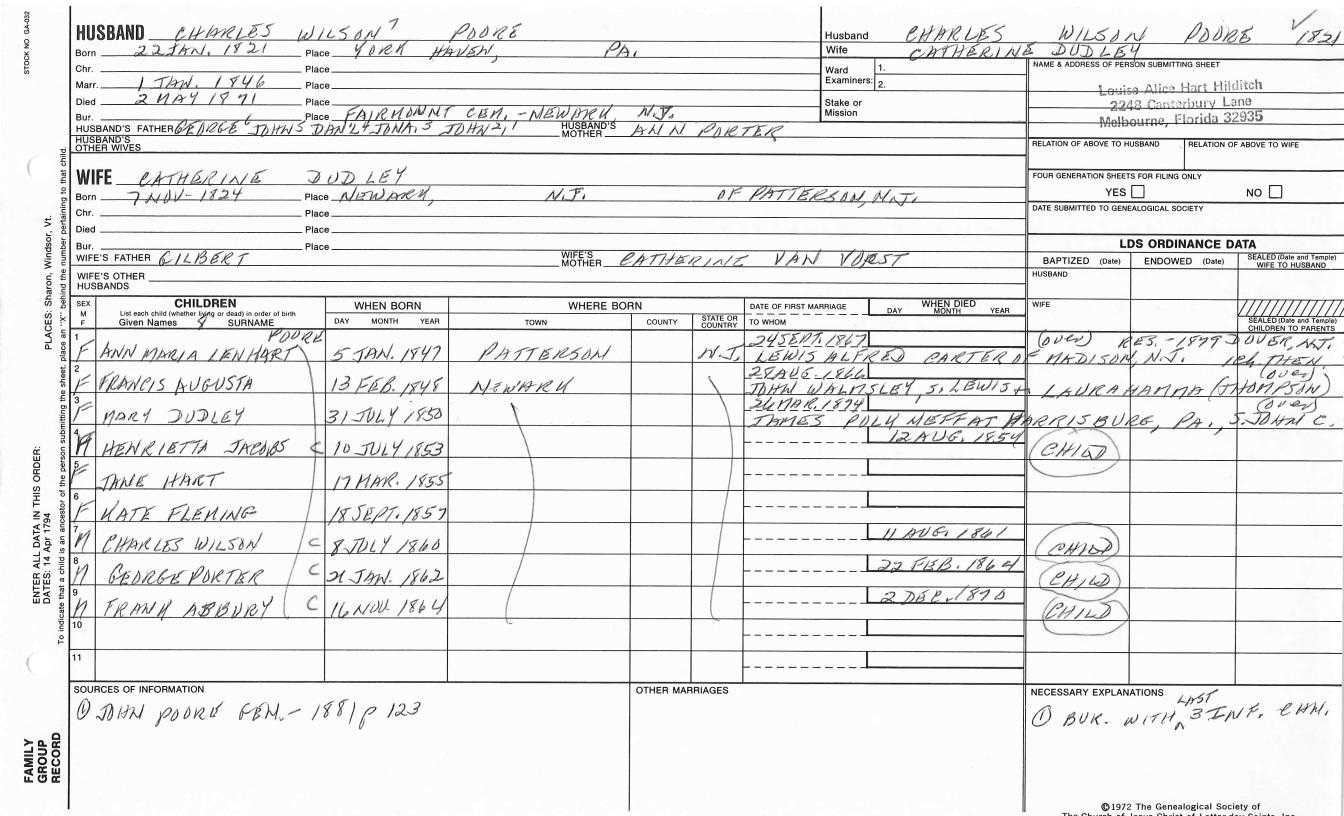 STOCK NO. GA-032
HUSBAND CHARLES WILSON 7 POORE
Born 22 JAN. 1821 Place YORK HAVEN, PA.
Chr. Place
Marr. 1 JAN. 1846 Place
Died 2 MAY 1871 Place
Bur. Place FAIRMONNT CEM. - NEWARK, N.J.
HUSBAND'S FATHER GEORGE 6 JOHN 5 DAN'L 4 JONA. 3 JOHN 2, 1 HUSBAND'S MOTHER ANN PORTER
HUSBAND'S OTHER WIVES
Husband CHARLES WILSON POORE ✓ 1821
Wife CATHERINE DUDLEY
Ward Examiners: 1.
2.
Stake or Mission
NAME & ADDRESS OF PERSON SUBMITTING SHEET
Louise Alice Hart Hilditch
2248 Canterbury Lane
Melbourne, Florida 32935
RELATION OF ABOVE TO HUSBAND RELATION OF ABOVE TO WIFE
FOUR GENERATION SHEETS FOR FILING ONLY
YES NO
DATE SUBMITTED TO GENEALOGICAL SOCIETY
WIFE CATHERINE DUDLEY
Born 7 NOV - 1824 Place NEWARK, N.J. OF PATTERSON, N.J.
Chr. Place
Died Place
Bur. Place
WIFE'S FATHER GILBERT WIFE'S MOTHER CATHERINE VAN VORST
WIFE'S OTHER HUSBANDS
LDS ORDINANCE DATA
BAPTIZED (Date) ENDOWED (Date) SEALED (Date and Temple) WIFE TO HUSBAND
HUSBAND
WIFE
SEALED (Date and Temple) CHILDREN TO PARENTS
SEX M F CHILDREN WHEN BORN WHERE BORN DATE OF FIRST MARRIAGE WHEN DIED
List each child (whether living or dead) in order of birth
Given Names 8 SURNAME DAY MONTH YEAR TOWN COUNTY STATE OR COUNTRY TO WHOM DAY MONTH YEAR
POORE 24 SEPT. 1867 (over) RES. - 1879 DOVER, N.J.
1 F ANN MARIA LENHART 5 JAN. 1847 PATTERSON N.J. LEWIS ALFRED CARTER OF MADISON, N.J. 1ch THEN
28 AUG. 1866 (over)
2 F FRANCIS AUGUSTA 13 FEB. 1848 NEWARK JOHN WALMSLEY, S. LEWIS + LAURA HAMMA (THOMPSON)
26 MAR. 1874 (over)
3 F MARY DUDLEY 31 JULY 1850 JAMES POLK MEFFAT HARRISBURG, PA., S. JOHN C.
4 HENRIETTA JACOBS C 10 JULY 1853 12 AUG. 1854 CHILD
5 F JANE HART 17 MAR. 1855
6 F KATE FLEMING 18 SEPT. 1857
7 M CHARLES WILSON C 8 JULY 1860 11 AUG. 1861 CHILD
8 M GEORGE PORTER C 21 JAN. 1862 22 FEB. 1864 CHILD
9 M FRANK ASBURY C 16 NOV. 1864 2 DEC. 1870 CHILD
10
11
SOURCES OF INFORMATION
① JOHN POORE GEN. - 1881 p 123
OTHER MARRIAGES
NECESSARY EXPLANATIONS
① BUR. WITH LAST 3 INF. CHN.
©1972 The Genealogical Society of
The Church of Jesus Christ of Latter-day Saints, Inc.
PLACES: Sharon, Windsor, Vt.
ENTER ALL DATA IN THIS ORDER:
DATES: 14 Apr 1794
To indicate that a child is an ancestor of the person submitting the sheet, place an "X" behind the number pertaining to that child.
FAMILY GROUP RECORD